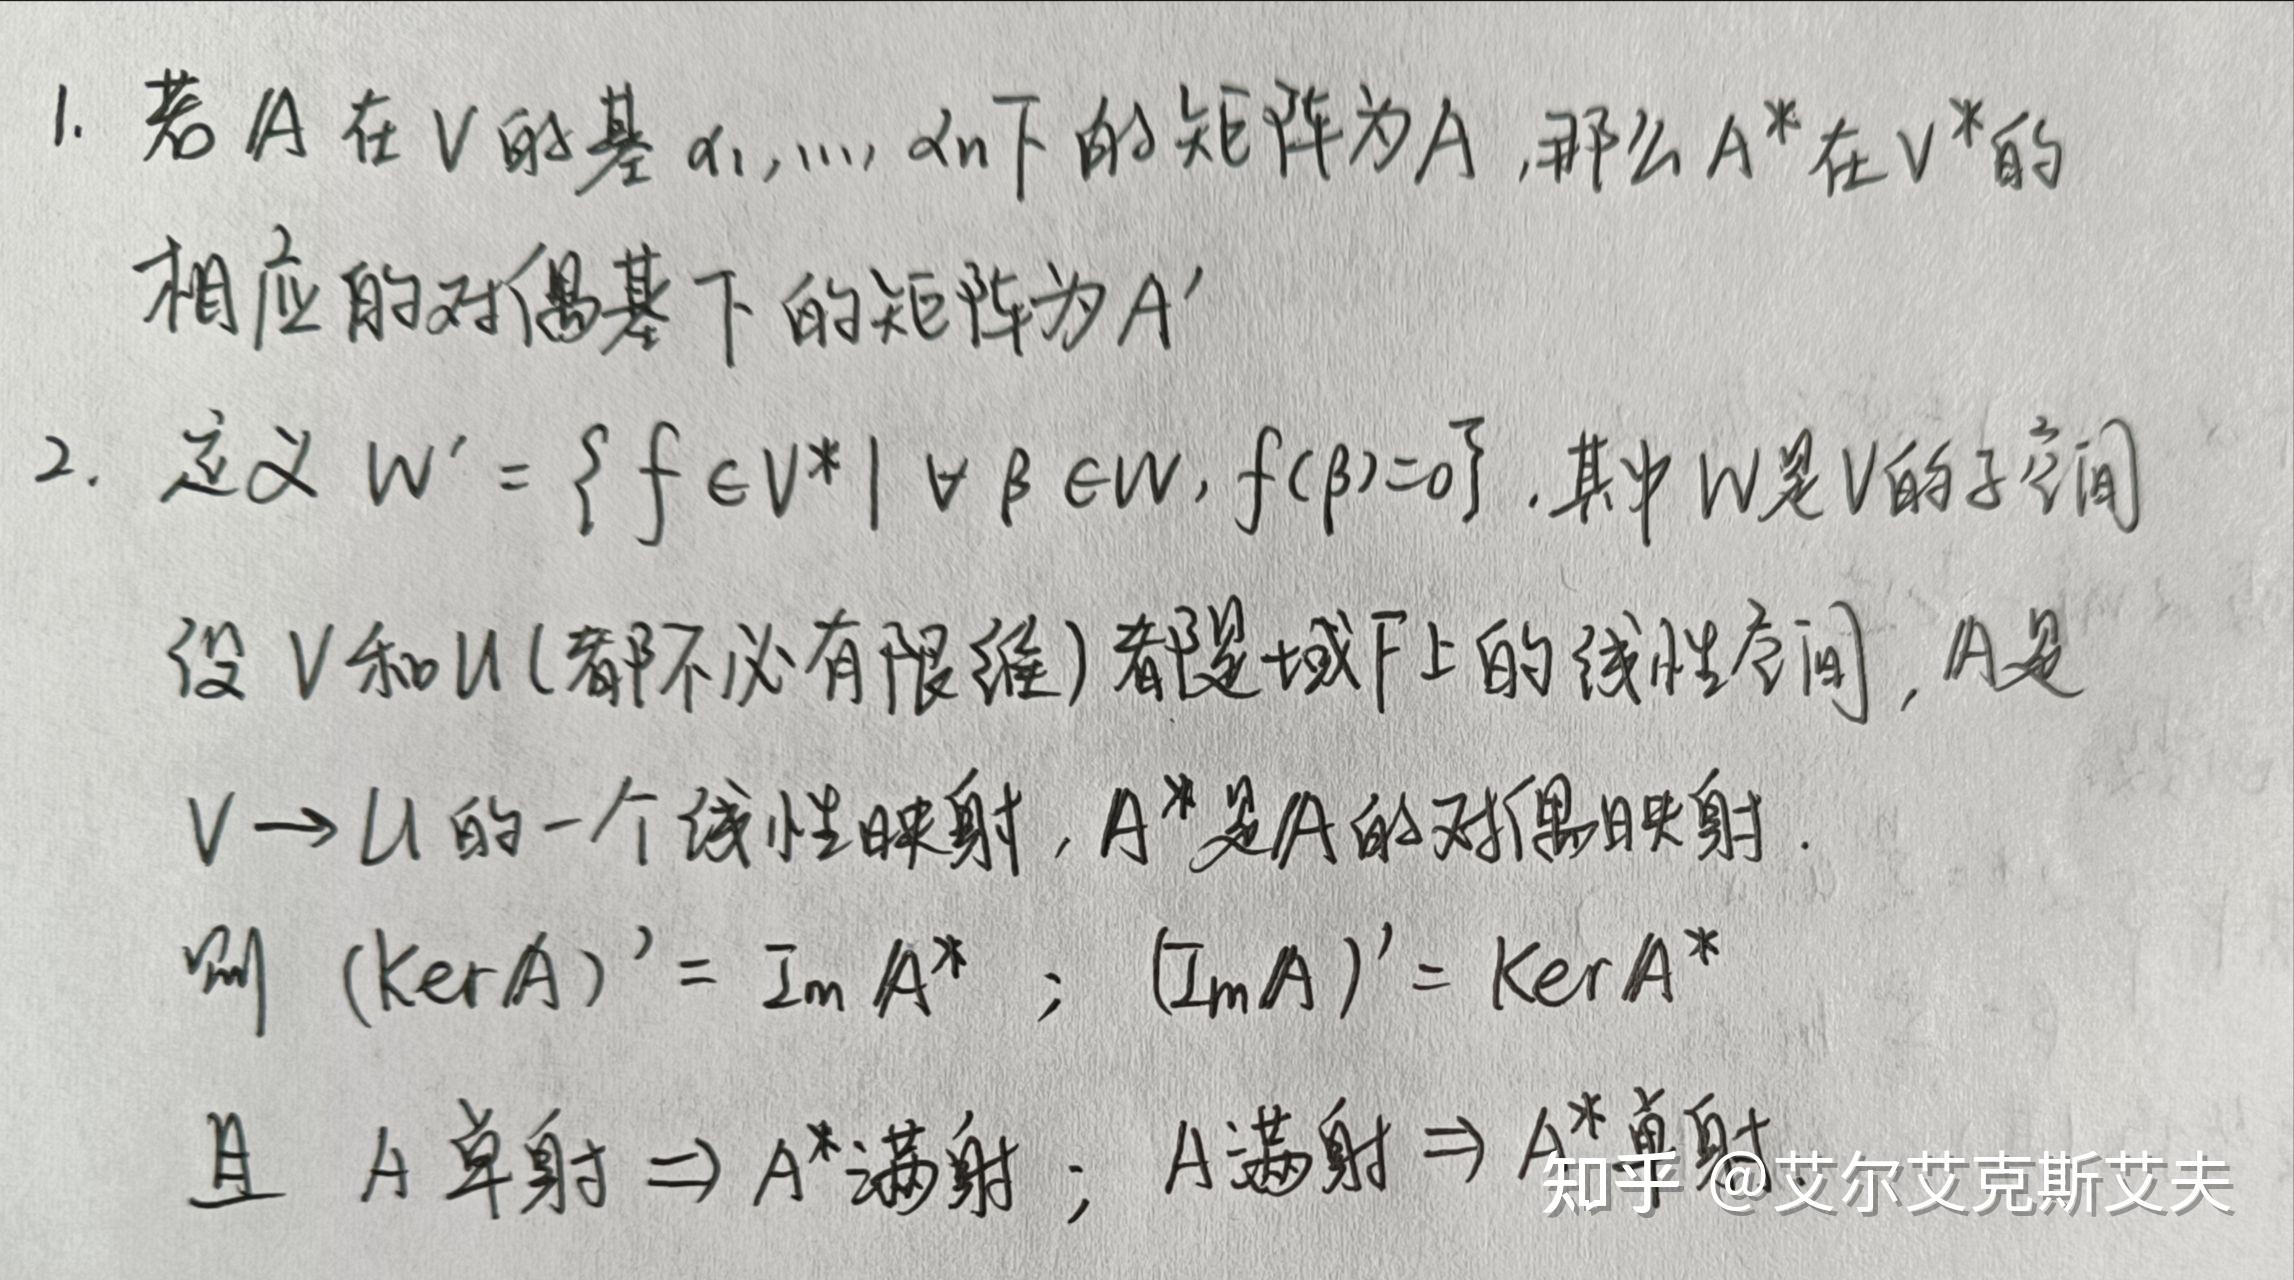 1. 若 𝔸 在 V 的基 α₁, ..., αn下的矩阵为A,那么 A*在V*的
相应的对偶基下的矩阵为A'
2. 定义 W' = {f∈V*|∀β∈W, f(β)=0}.其中W是V的子空间
设 V和U(都不必有限维)都是域F上的线性空间, 𝔸是
V→U的一个线性映射, 𝔸*是𝔸的对偶映射.
则 (Ker𝔸)' = Im 𝔸* ; (Im𝔸)' = Ker𝔸*
且 A单射⇒A*满射; A满射⇒A*单射.
知乎 @艾尔艾克斯艾夫